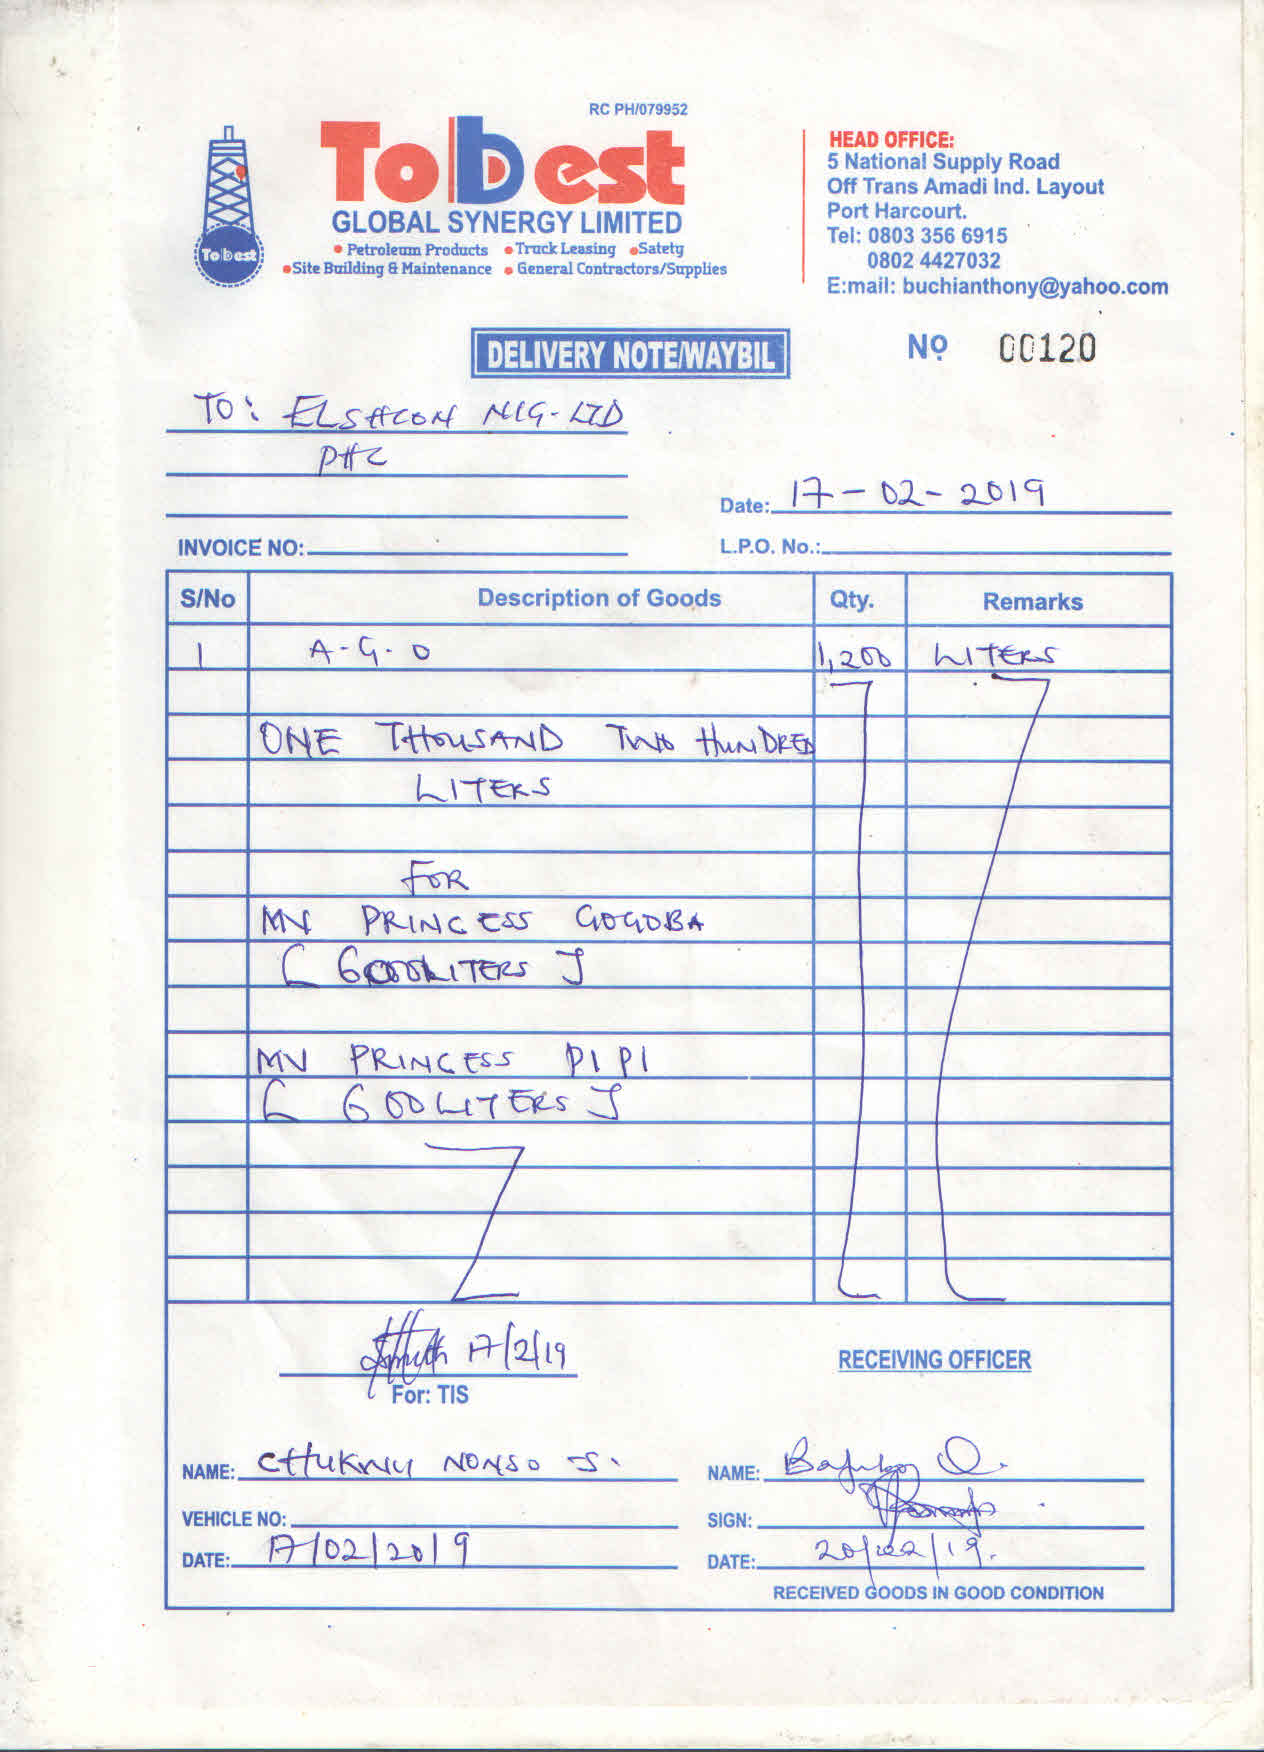 RC PH/079952
Tobest
GLOBAL SYNERGY LIMITED
Petroleum Products Truck Leasing Satety
Site Building & Maintenance General Contractors/Supplies
Tobest
HEAD OFFICE:
5 National Supply Road
Off Trans Amadi Ind. Layout
Port Harcourt.
Tel: 0803 356 6915
0802 4427032
E:mail: buchianthony@yahoo.com
DELIVERY NOTE/WAYBIL
No 00120
TO: ELSHCON NIG-LTD
PHC
Date: 17-02-2019
INVOICE NO:
L.P.O. No.:
S/No Description of Goods Qty. Remarks
1 A-G-O 1,200 LITERS
ONE THOUSAND TWO HUNDRED
LITERS
FOR
MV PRINCESS GOGOBA
[ 600LITERS ]
MV PRINCESS PIPI
[ 600LITERS ]
17/2/19
For: TIS
RECEIVING OFFICER
NAME: CHUKWU NONSO J.
NAME:
VEHICLE NO:
SIGN:
DATE: 17/02/2019
DATE: 20/02/19.
RECEIVED GOODS IN GOOD CONDITION